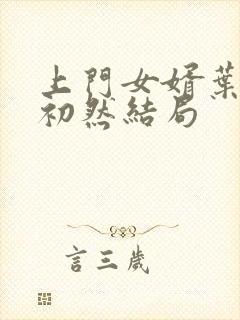 上門女婿葉
初然結局
言三歲